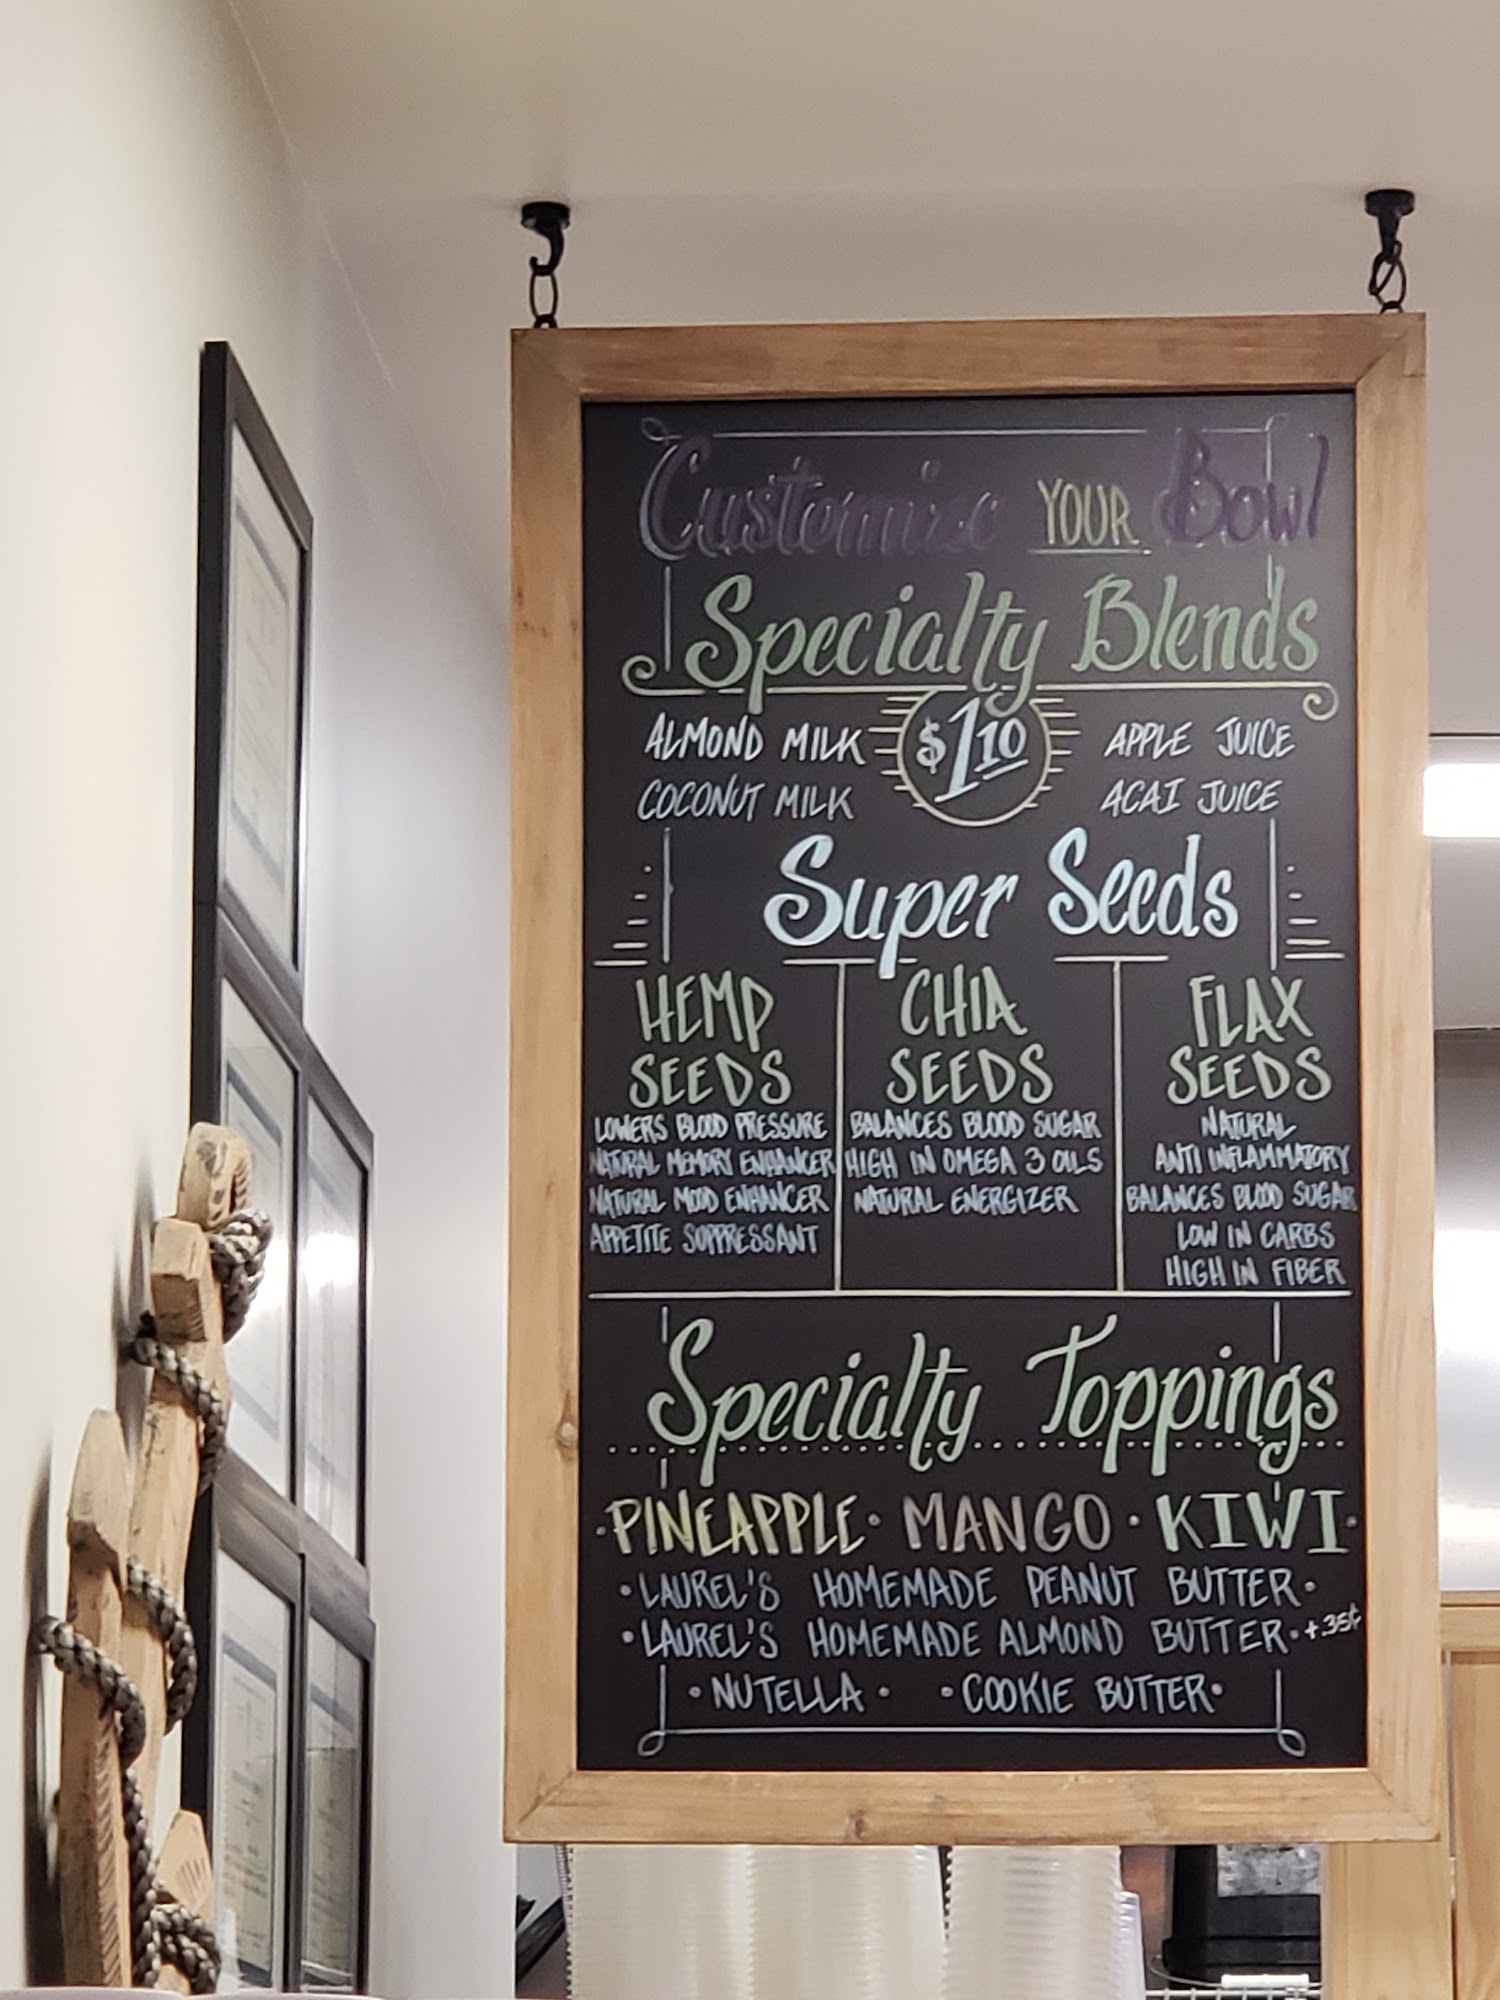 Customize YOUR Bowl
Specialty Blends
ALMOND MILK $1.10 APPLE JUICE
COCONUT MILK ACAI JUICE
Super Seeds
HEMP SEEDS
LOWERS BLOOD PRESSURE
NATURAL MEMORY ENHANCER
NATURAL MOOD ENHANCER
APPETITE SUPPRESSANT
CHIA SEEDS
BALANCES BLOOD SUGAR
HIGH IN OMEGA 3 OILS
NATURAL ENERGIZER
FLAX SEEDS
NATURAL
ANTI INFLAMMATORY
BALANCES BLOOD SUGAR
LOW IN CARBS
HIGH IN FIBER
Specialty Toppings
•PINEAPPLE• MANGO • KIWI•
•LAUREL'S HOMEMADE PEANUT BUTTER•
•LAUREL'S HOMEMADE ALMOND BUTTER• +.35¢
•NUTELLA• •COOKIE BUTTER•